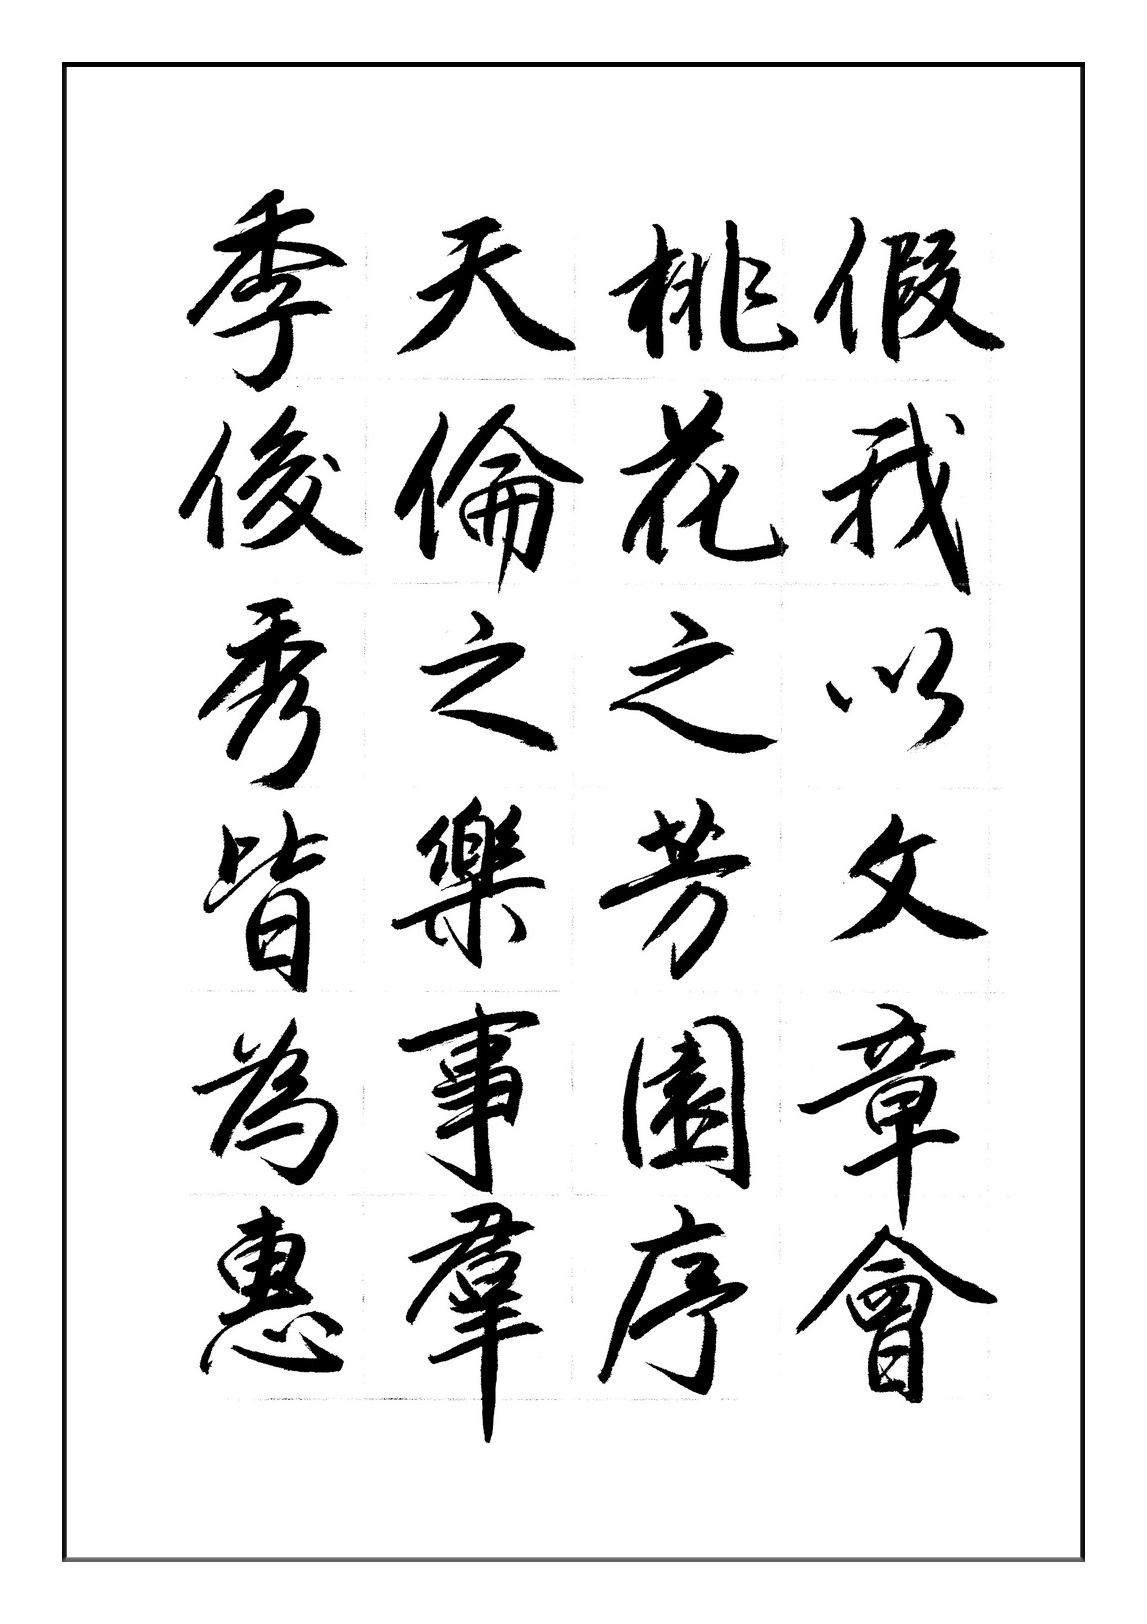 假我以文章會
桃花之芳園序
天倫之樂事羣
季俊秀皆為惠